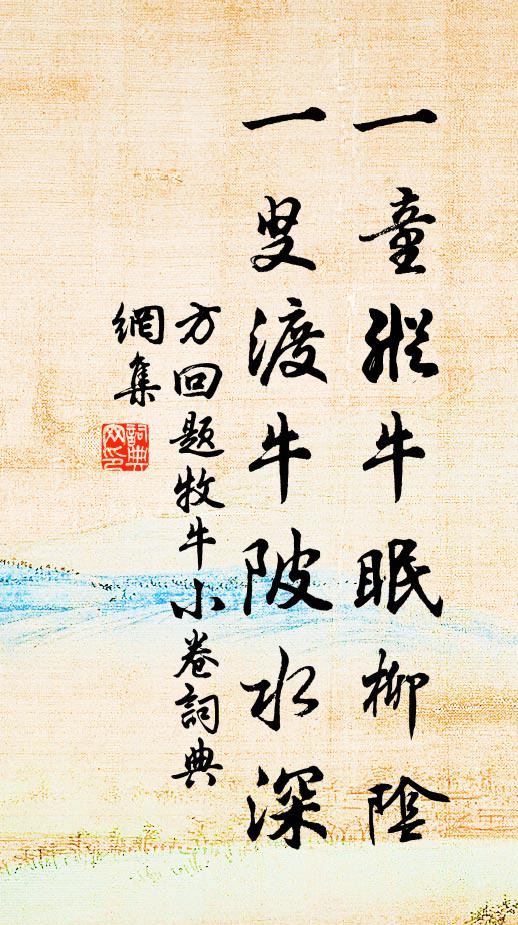 一童縱牛眠柳陰
一叟渡牛陂水深
方回題牧牛小卷詞典
網集